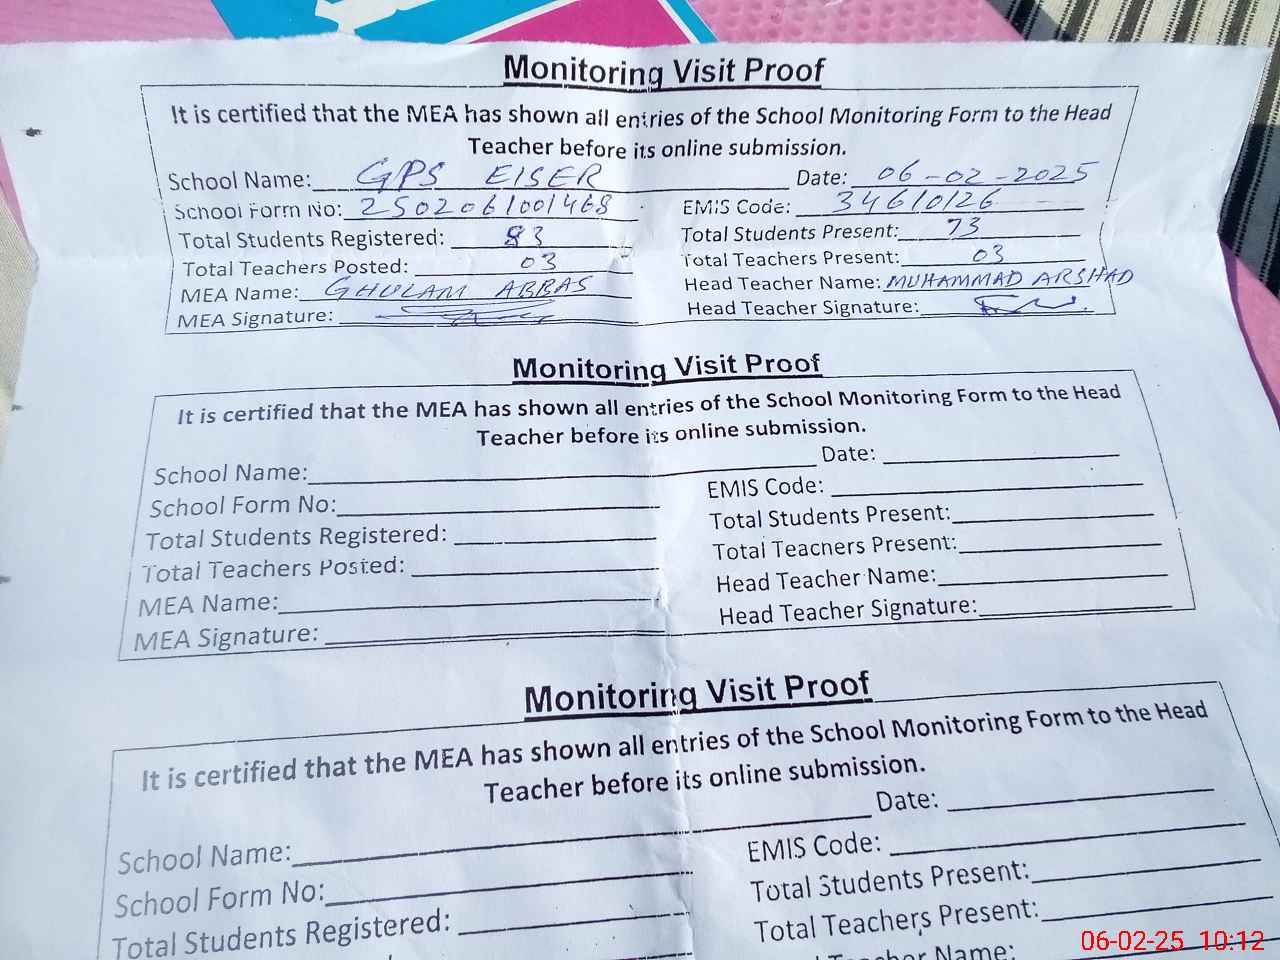 Monitoring Visit Proof
It is certified that the MEA has shown all entries of the School Monitoring Form to the Head
Teacher before its online submission.
School Name: GPS EISER Date: 06-02-2025
School Form No: 2502061001468 EMIS Code: 34610126
Total Students Registered: 83 Total Students Present: 73
Total Teachers Posted: 03 Total Teachers Present: 03
MEA Name: GHULAM ABBAS Head Teacher Name: MUHAMMAD ARSHAD
MEA Signature: Head Teacher Signature:
Monitoring Visit Proof
It is certified that the MEA has shown all entries of the School Monitoring Form to the Head
Teacher before its online submission.
School Name: Date:
School Form No: EMIS Code:
Total Students Registered: Total Students Present:
Total Teachers Posted: Total Teachers Present:
MEA Name: Head Teacher Name:
MEA Signature: Head Teacher Signature:
Monitoring Visit Proof
It is certified that the MEA has shown all entries of the School Monitoring Form to the Head
Teacher before its online submission.
School Name: Date:
School Form No: EMIS Code:
Total Students Registered: Total Students Present:
Total Teachers Present:
Teacher Name:
06-02-25 10:12